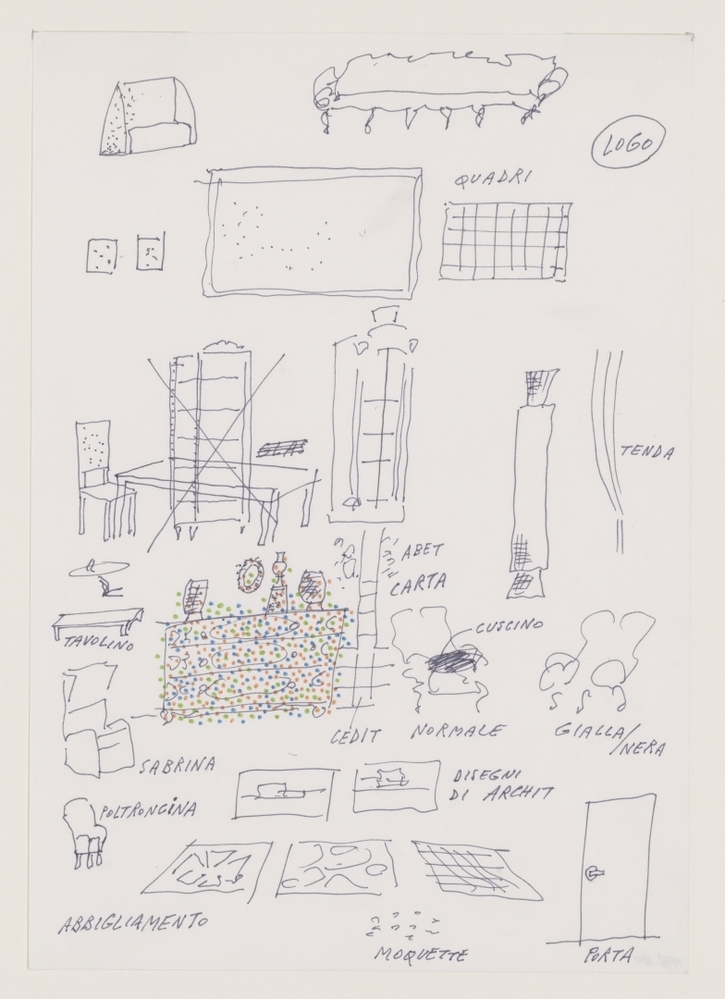 LOGO
QUADRI
TENDA
ABET
CARTA
CUSCINO
TAVOLINO
CEDIT
NORMALE
GIALLA/
NERA
SABRINA
DISEGNI
DI ARCHIT
POLTRONCINA
ABBIGLIAMENTO
MOQUETTE
PORTA